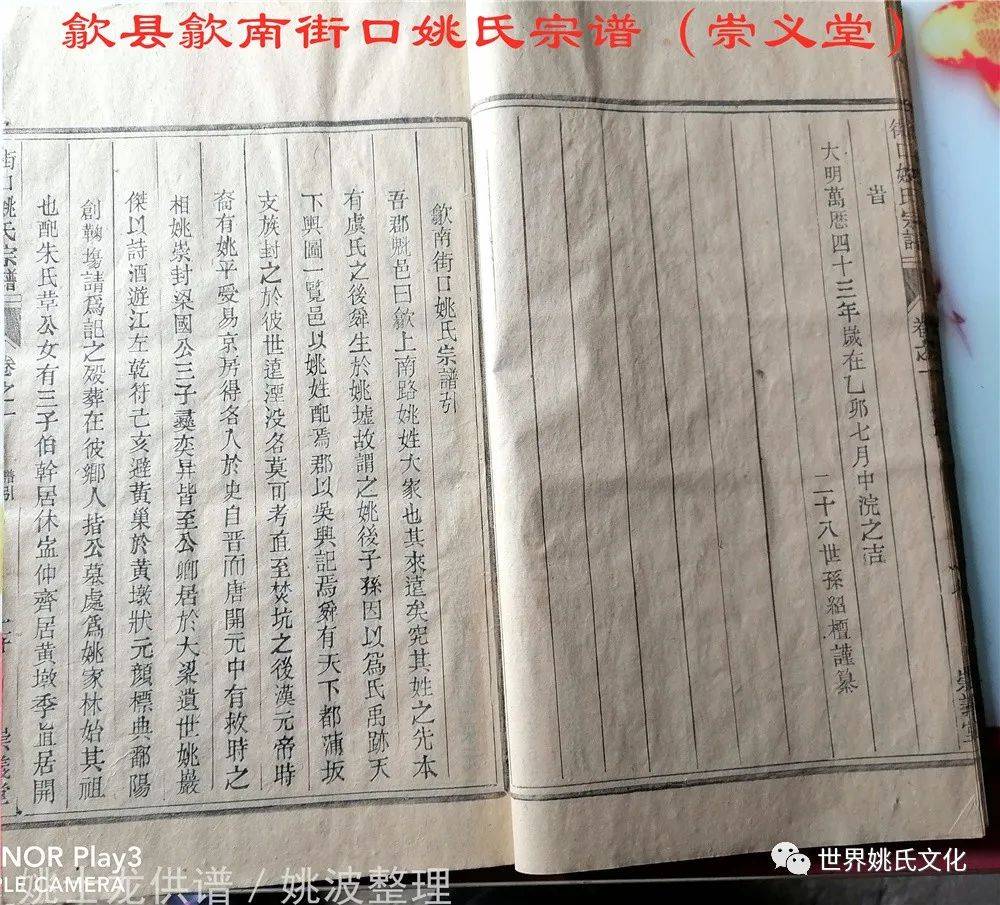 歙县歙南街口姚氏宗谱（崇义堂）
街口姚氏宗譜
卷之一
昔
大明萬厯四十三年歲在乙卯七月中浣之吉
二十八世孫紹檀謹纂
歙南街口姚氏宗譜引
吾郡甦邑曰歙上南路姚姓大家也其來遠矣究其姓之先本
有虞氏之後舜生於姚墟故謂之姚後子孫因以爲氏禹跡天
下輿圖一覽邑以姚姓配焉郡以吳興記焉舜有天下都蒲坂
支族封之於彼世遠湮没名莫可考直至焚坑之後漢元帝時
裔有姚平受易京房得各入於史自晋而唐開元中有救時之
相姚崇封梁國公三子彞奕昇皆至公卿居於大梁遺世姚巖
傑以詩酒遊江左乾符己亥避黃巢於黃墩狀元顏標典鄱陽
創鞠塲請爲記之殁葬在彼鄉人指公墓處爲姚家林始其祖
也配朱氏葶公女有三子伯幹居休寍仲齊居黃墩季𥄂居開
街口姚氏宗譜
卷之一
譜引
崇義堂
NOR Play3
PLE CAMERA
供谱 / 姚波整理
世界姚氏文化